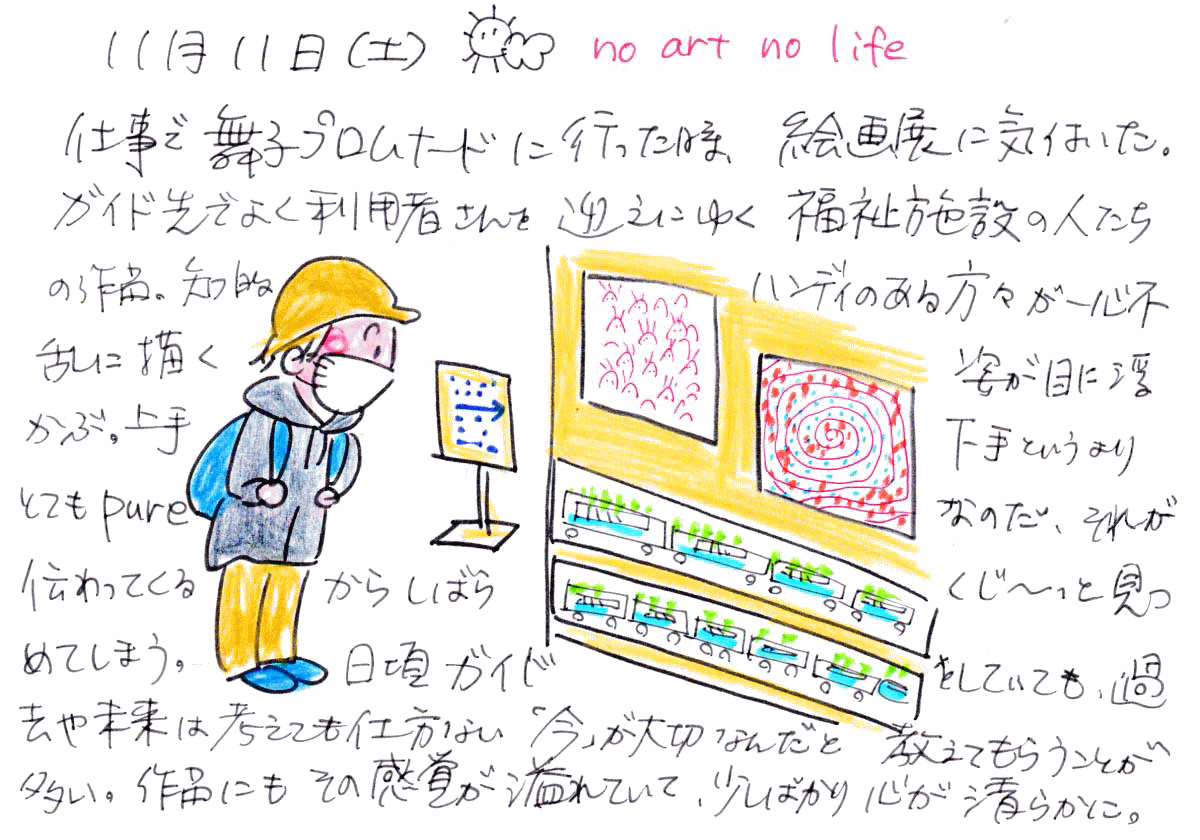 11月11日(土) no art no life
仕事で舞子プロムナードに行った時、絵画展に気付いた。
ガイド先でよく利用者さんを迎えにゆく福祉施設の人たち
の作品。知的ハンディのある方々が一心不
乱に描く姿が目に浮
かぶ。上手下手というより
とてもpureなのだ、それが
伝わってくるからしばらくじ〜っと見つ
めてしまう。日頃ガイドをしていても、過
去や未来は考えても仕方ない「今」が大切なんだと教えてもらうことが
多い。作品にもその感覚が溢れていて、少しばかり心が清らかに。